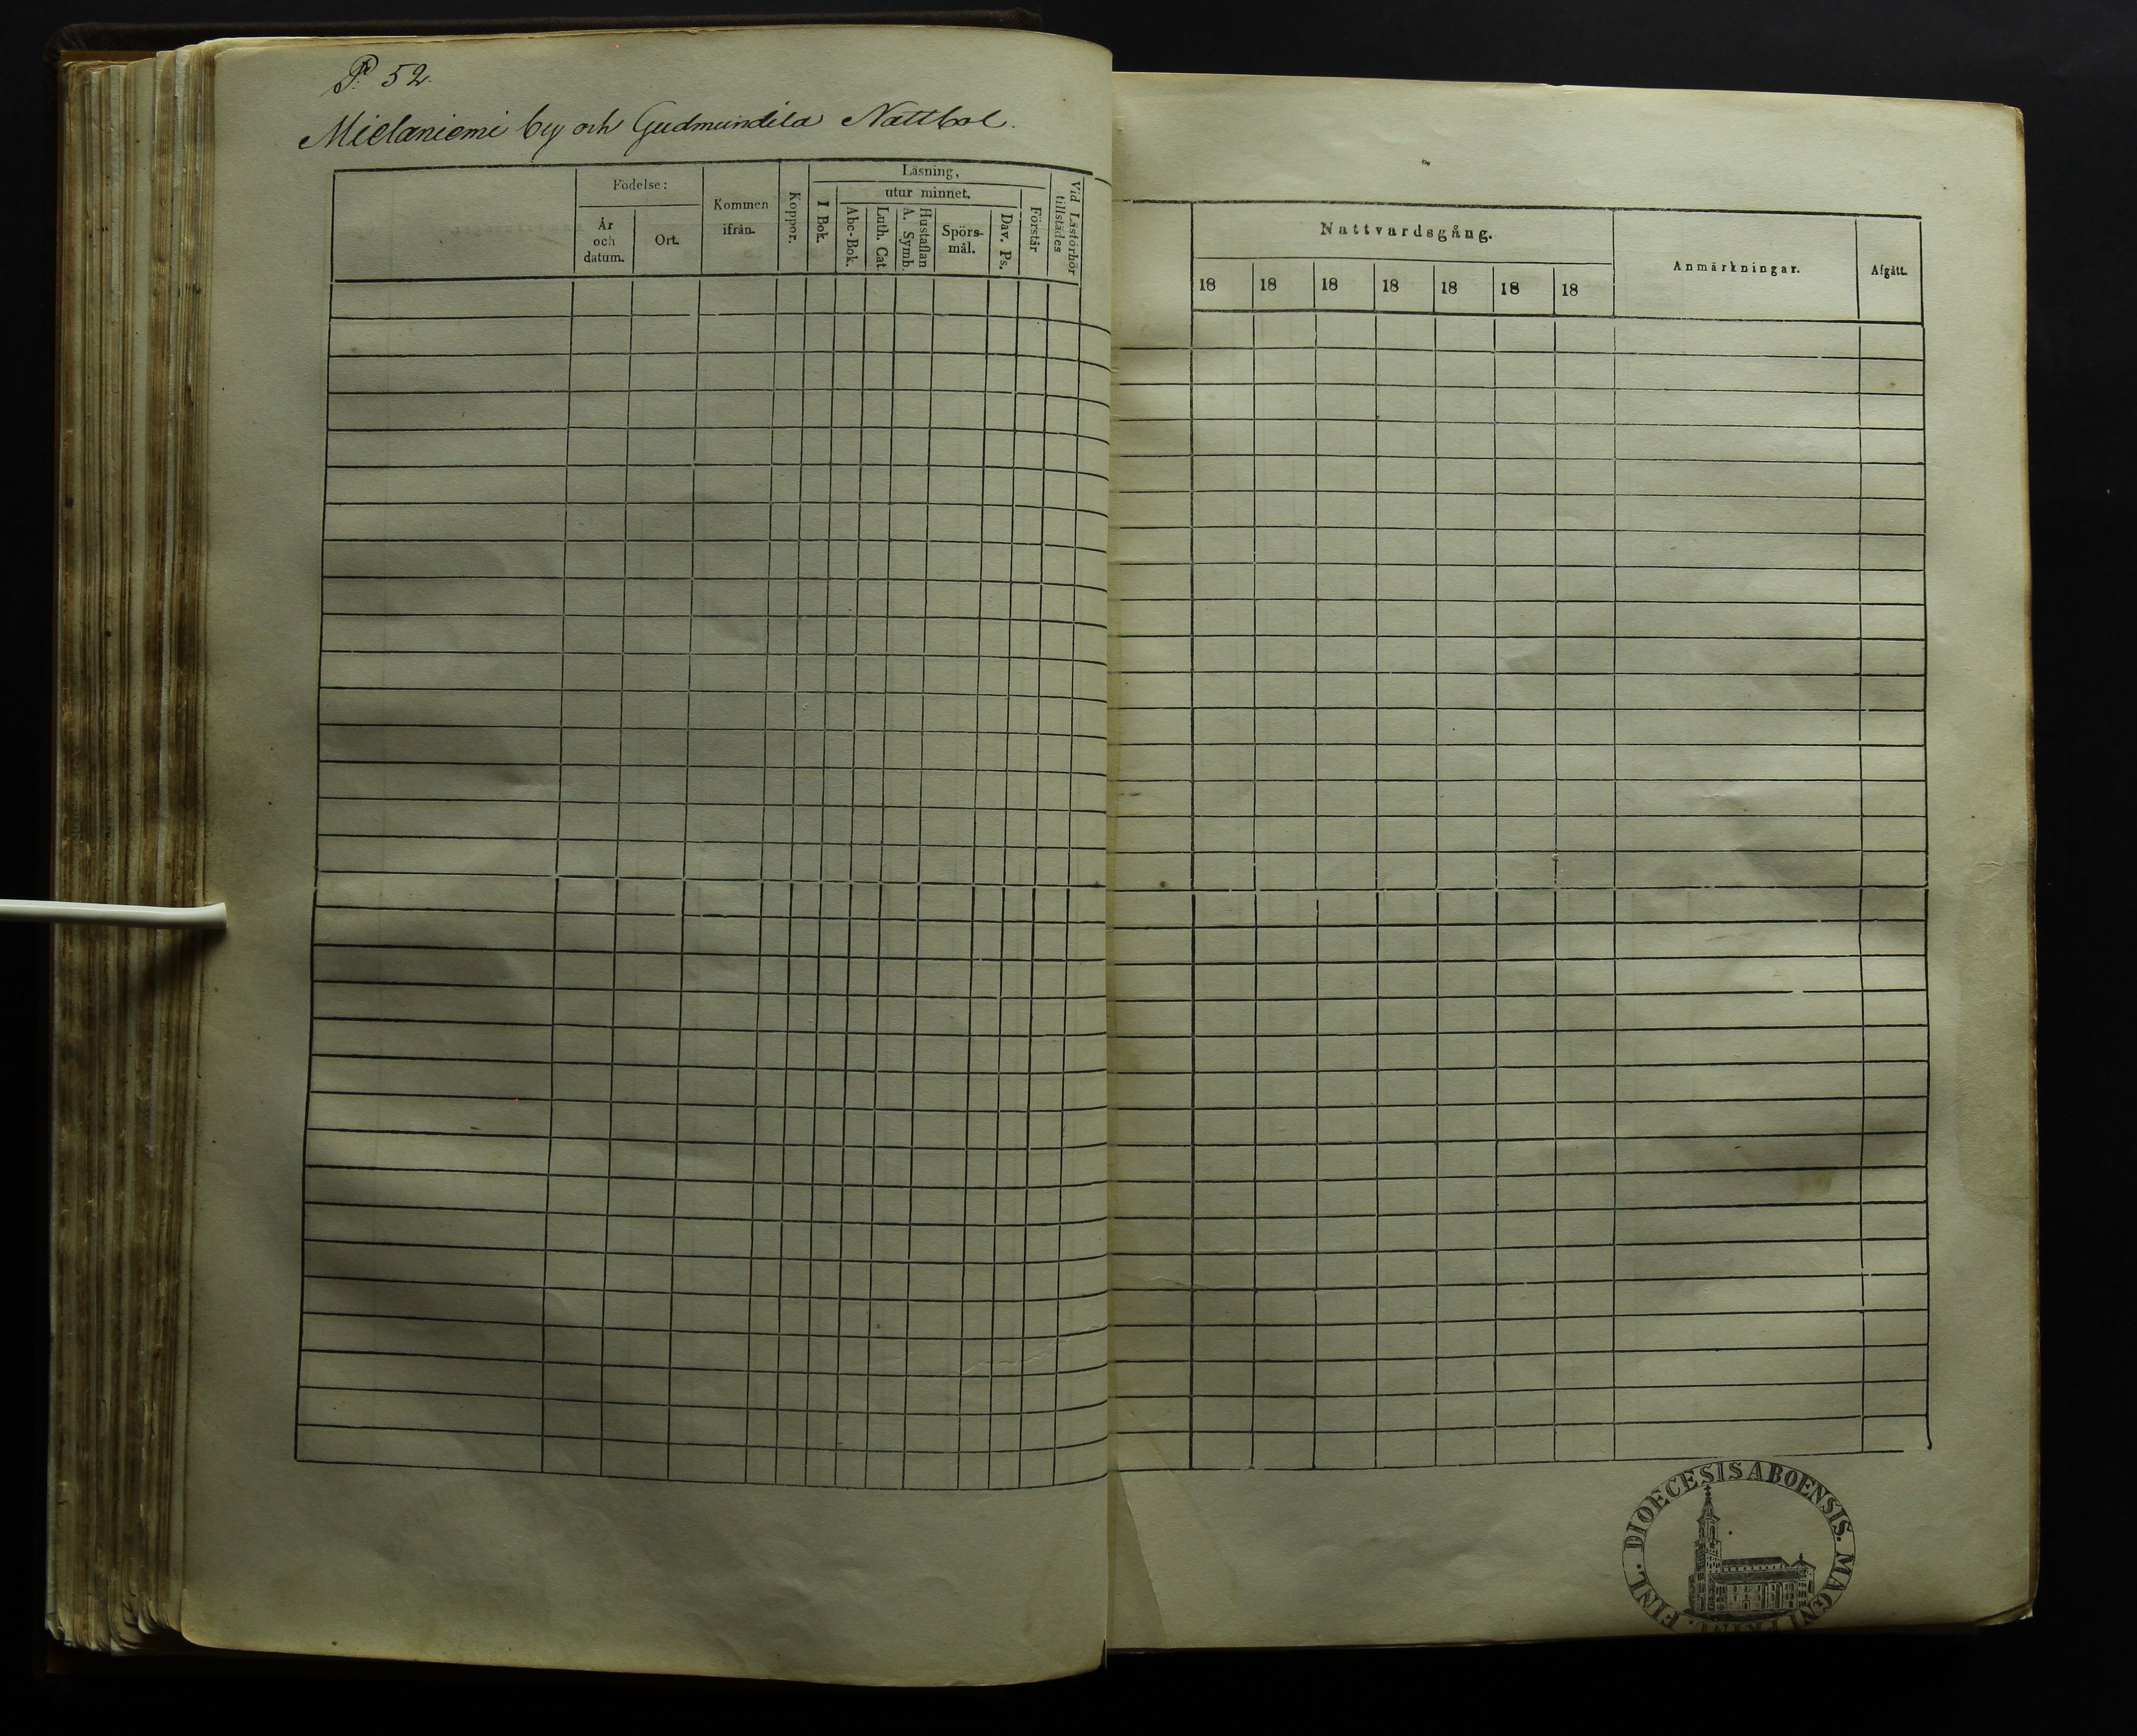 P. 52.
Mielaniemi by och Gudmundila Nattbol.
Födelse:
År och datum.
Ort.
Kommen ifrån.
Koppor.
Läsning,
I Bok.
utur minnet.
Abc-Bok.
Luth. Cat.
Hustaflan A. Symb.
Spörs-mål.
Dav. Ps.
Förstår
Vid Läsförhör tillstädes
Nattvardsgång.
18 18 18 18 18 18 18
Anmärkningar.
Afgått.
DIOECESIS ABOENSIS. MAGNI PRINC. FINL.